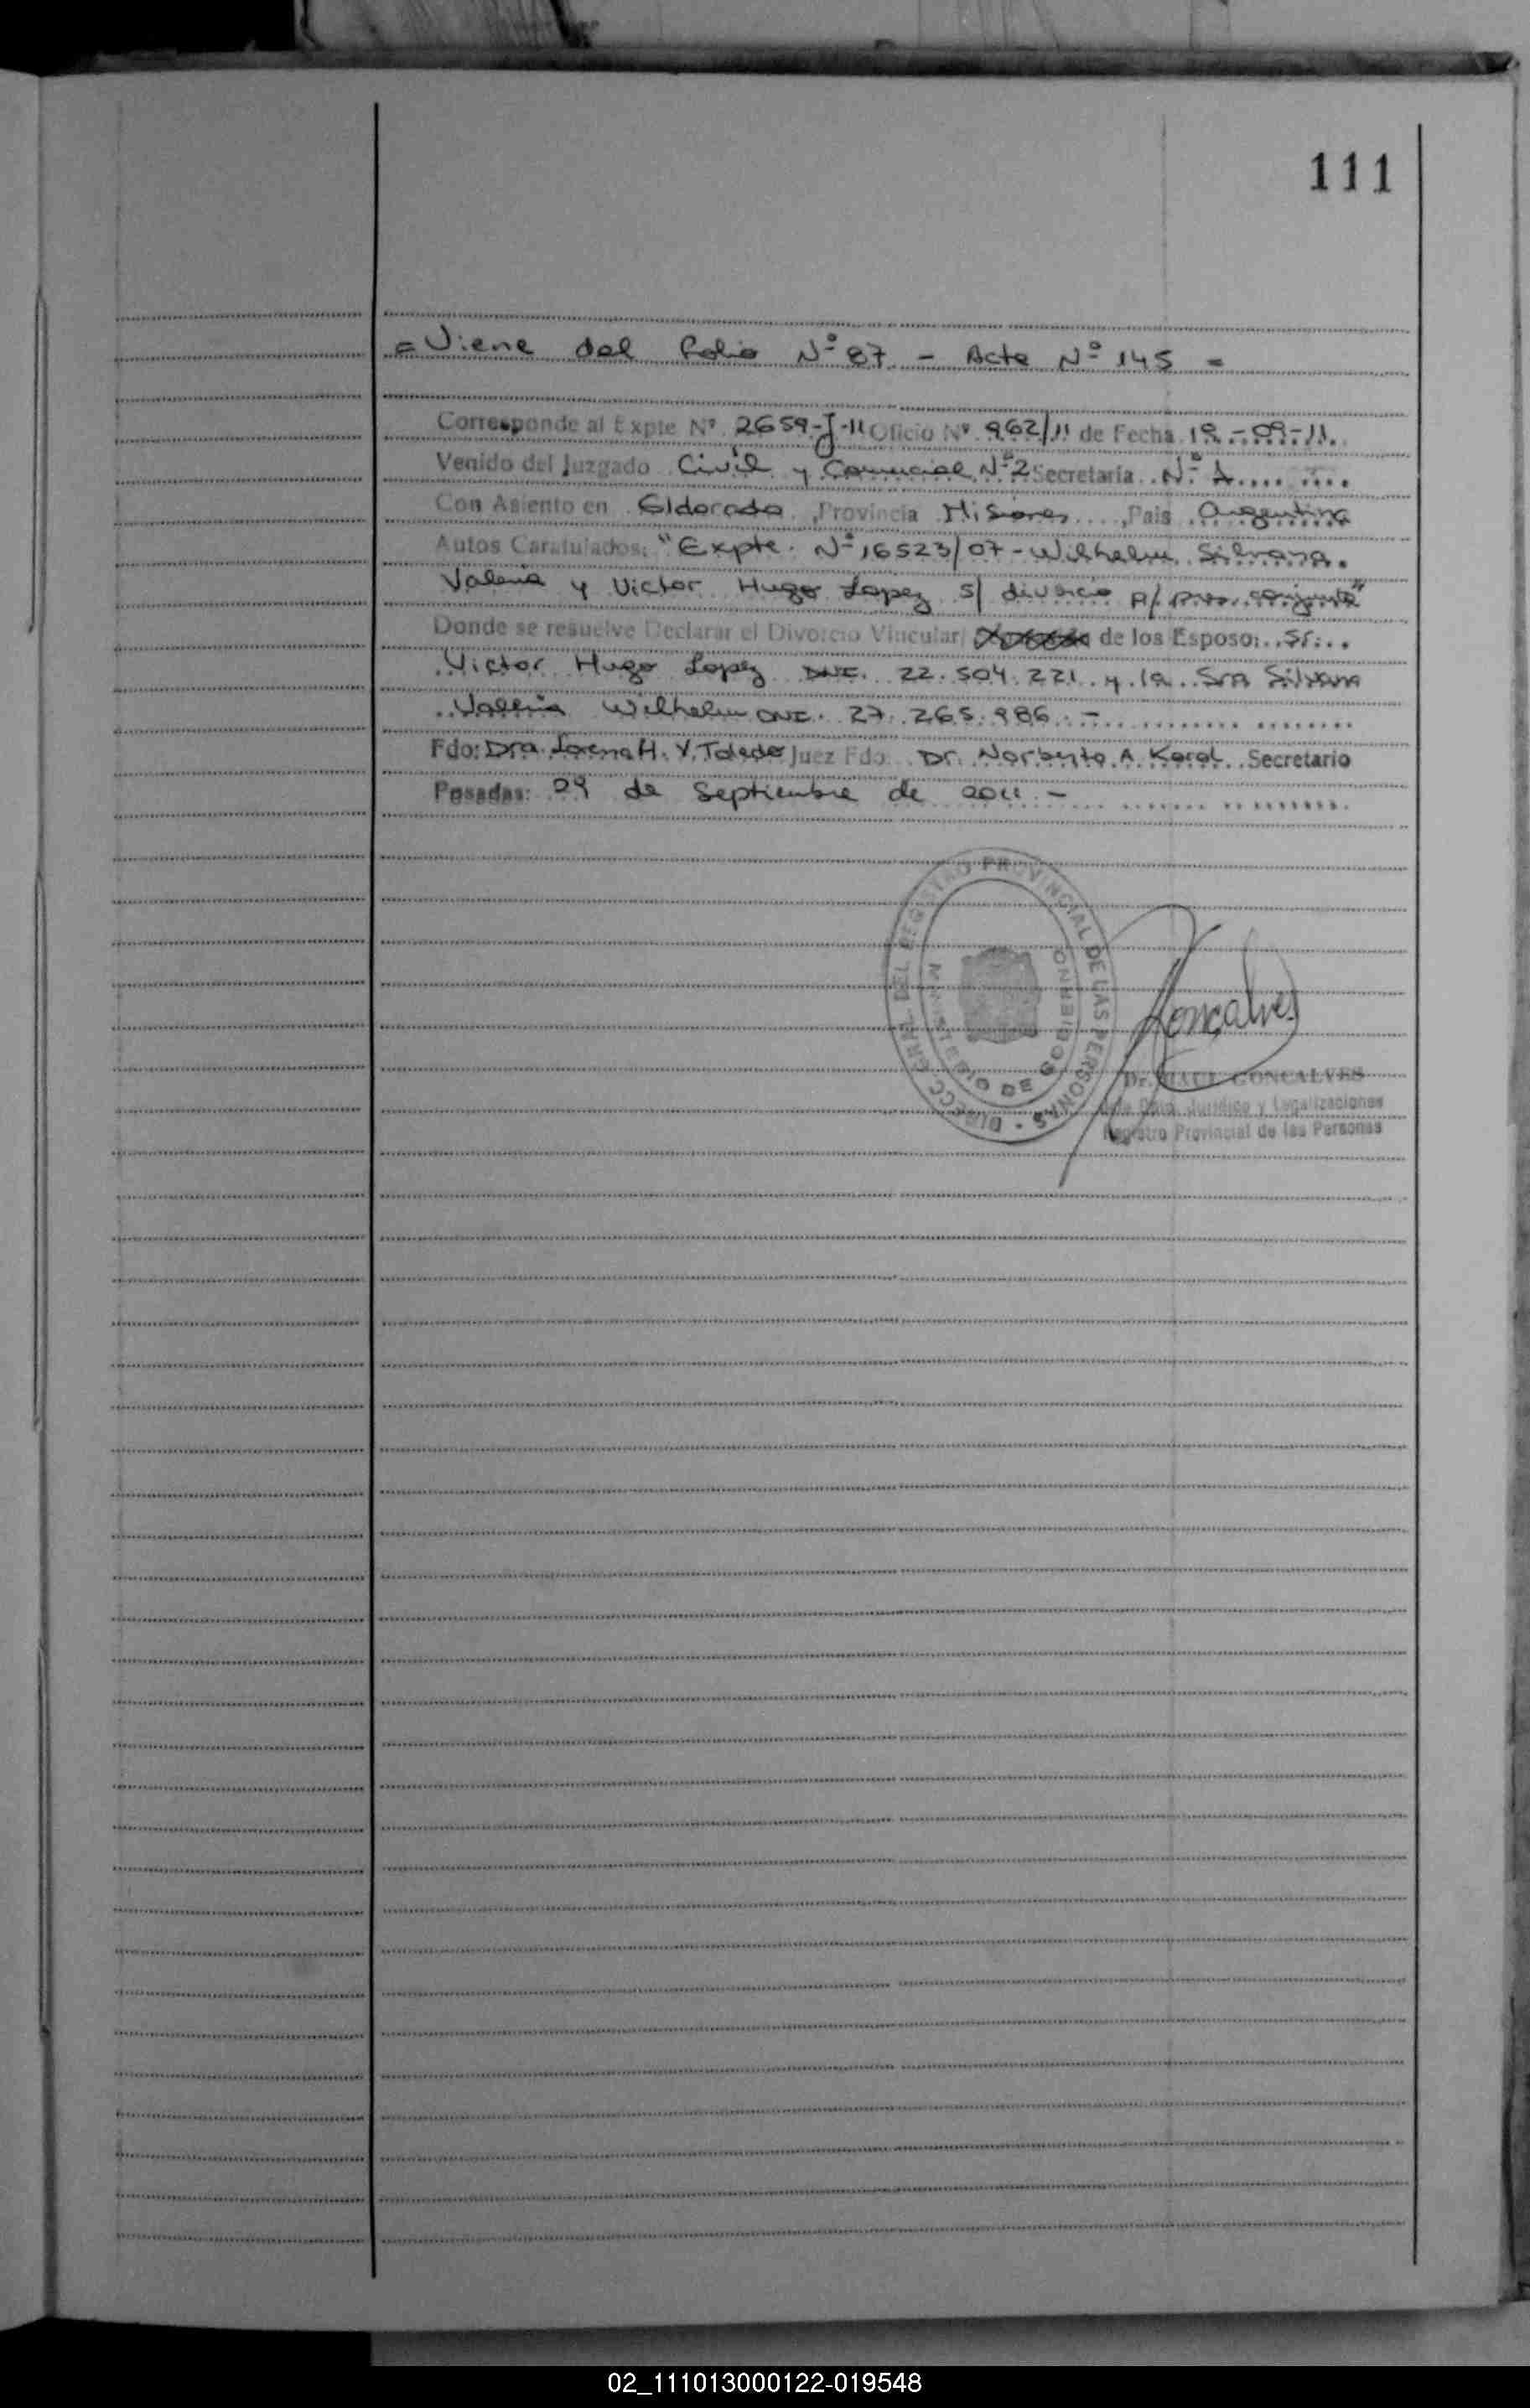 111
= Viene del folio Nº 87 - Acta Nº 145 =
Corresponde al Expte Nº 2659-J-11 Oficio Nº 962/11 de Fecha 19-09-11.
Venido del Juzgado Civil y Comercial Nº 2 Secretaría Nº 1
Con Asiento en Eldorado, Provincia Misiones, Pais Argentina
Autos Caratulados: "Expte. Nº 16523/07 - Wilhelm Silvana
Valeria y Victor Hugo Lopez s/ divorcio p/ pres. conjunta"
Donde se resuelve Declarar el Divorcio Vincular/ de los Esposo: Sr.
Victor Hugo Lopez DNI. 22.504.221 y la Sra Silvana
Valeria Wilhelm DNI. 27.265.986. -
Fdo: Dra. Lorena H. V. Toledo Juez Fdo. Dr. Norberto A. Korol Secretario
Posadas: 29 de Septiembre de 2011 -
DIRECC GRAL DEL REGISTRO PROVINCIAL DE LAS PERSONAS
MINISTERIO DE GOBIERNO
Goncalves
Dr. GONCALVES
Jurídico y Legalizaciones
Registro Provincial de las Personas
02_111013000122-019548